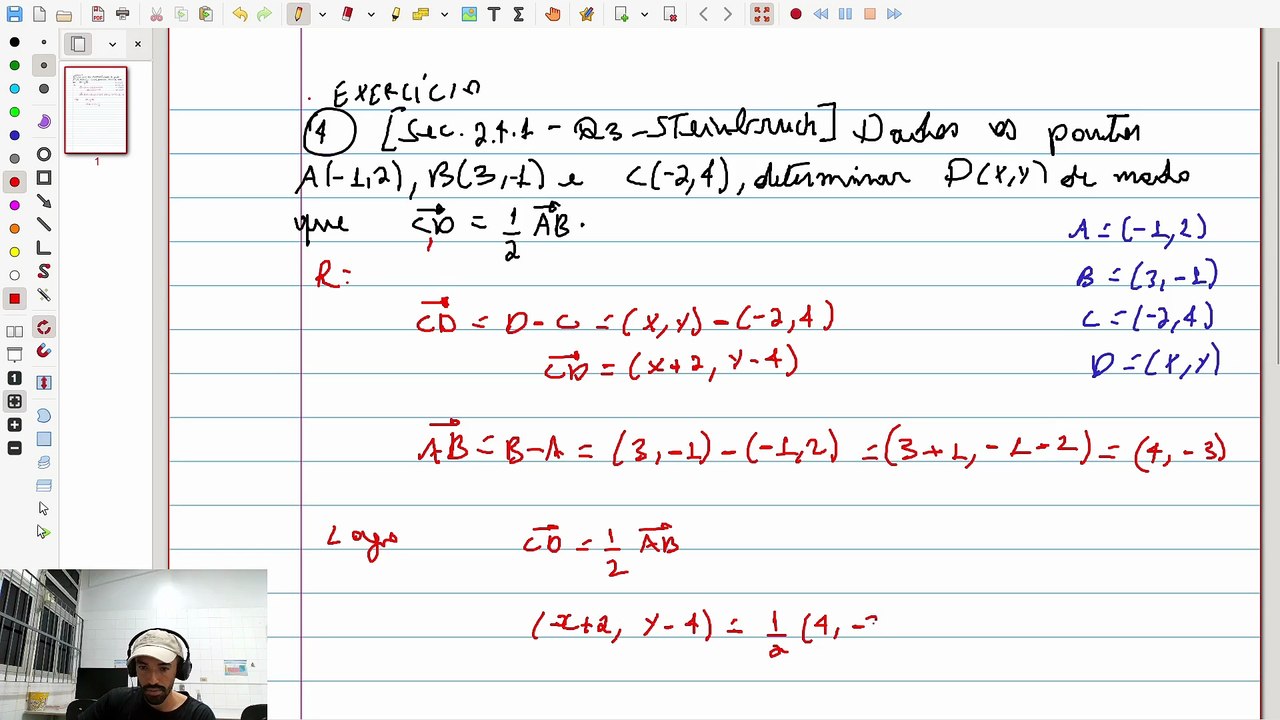 EXERCÍCIO
4 [Sec. 2.4.1 - Q3 - Steinbruch] Dados os pontos
A(-1,2), B(3,-1) e C(-2,4), determinar D(x,y) de modo
que CD = 1/2 AB.
A = (-1,2)
B = (3,-1)
C = (-2,4)
D = (x,y)
R:
CD = D - C = (x,y) - (-2,4)
CD = (x+2, y-4)
AB = B-A = (3,-1) - (-1,2) = (3+1, -1-2) = (4,-3)
Logo CD = 1/2 AB
(x+2, y-4) = 1/2 (4, -
1
1